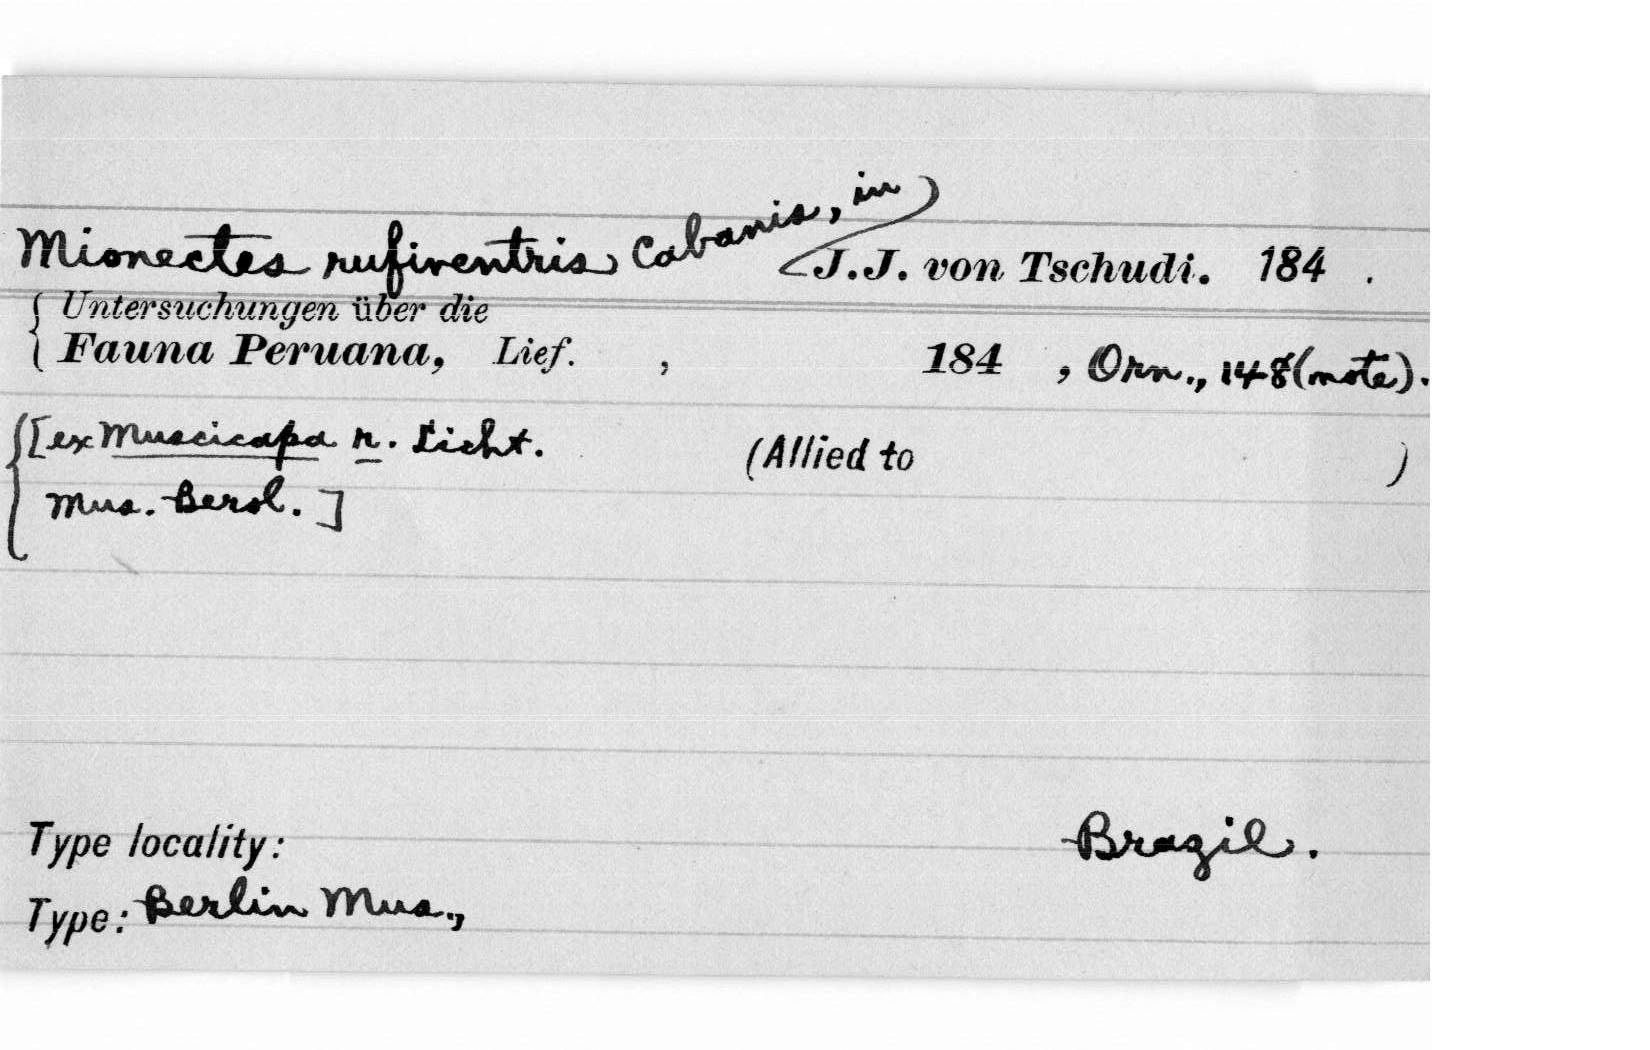 Mionectes rufiventris Cabanis, in J.J. von Tschudi. 184 .
{ Untersuchungen über die
Fauna Peruana, Lief. , 184 , Orn., 148 (note).
{ [ex Muscicapa r. Licht. (Allied to )
Mus. Berol.]
Type locality: Brazil.
Type: Berlin Mus.,